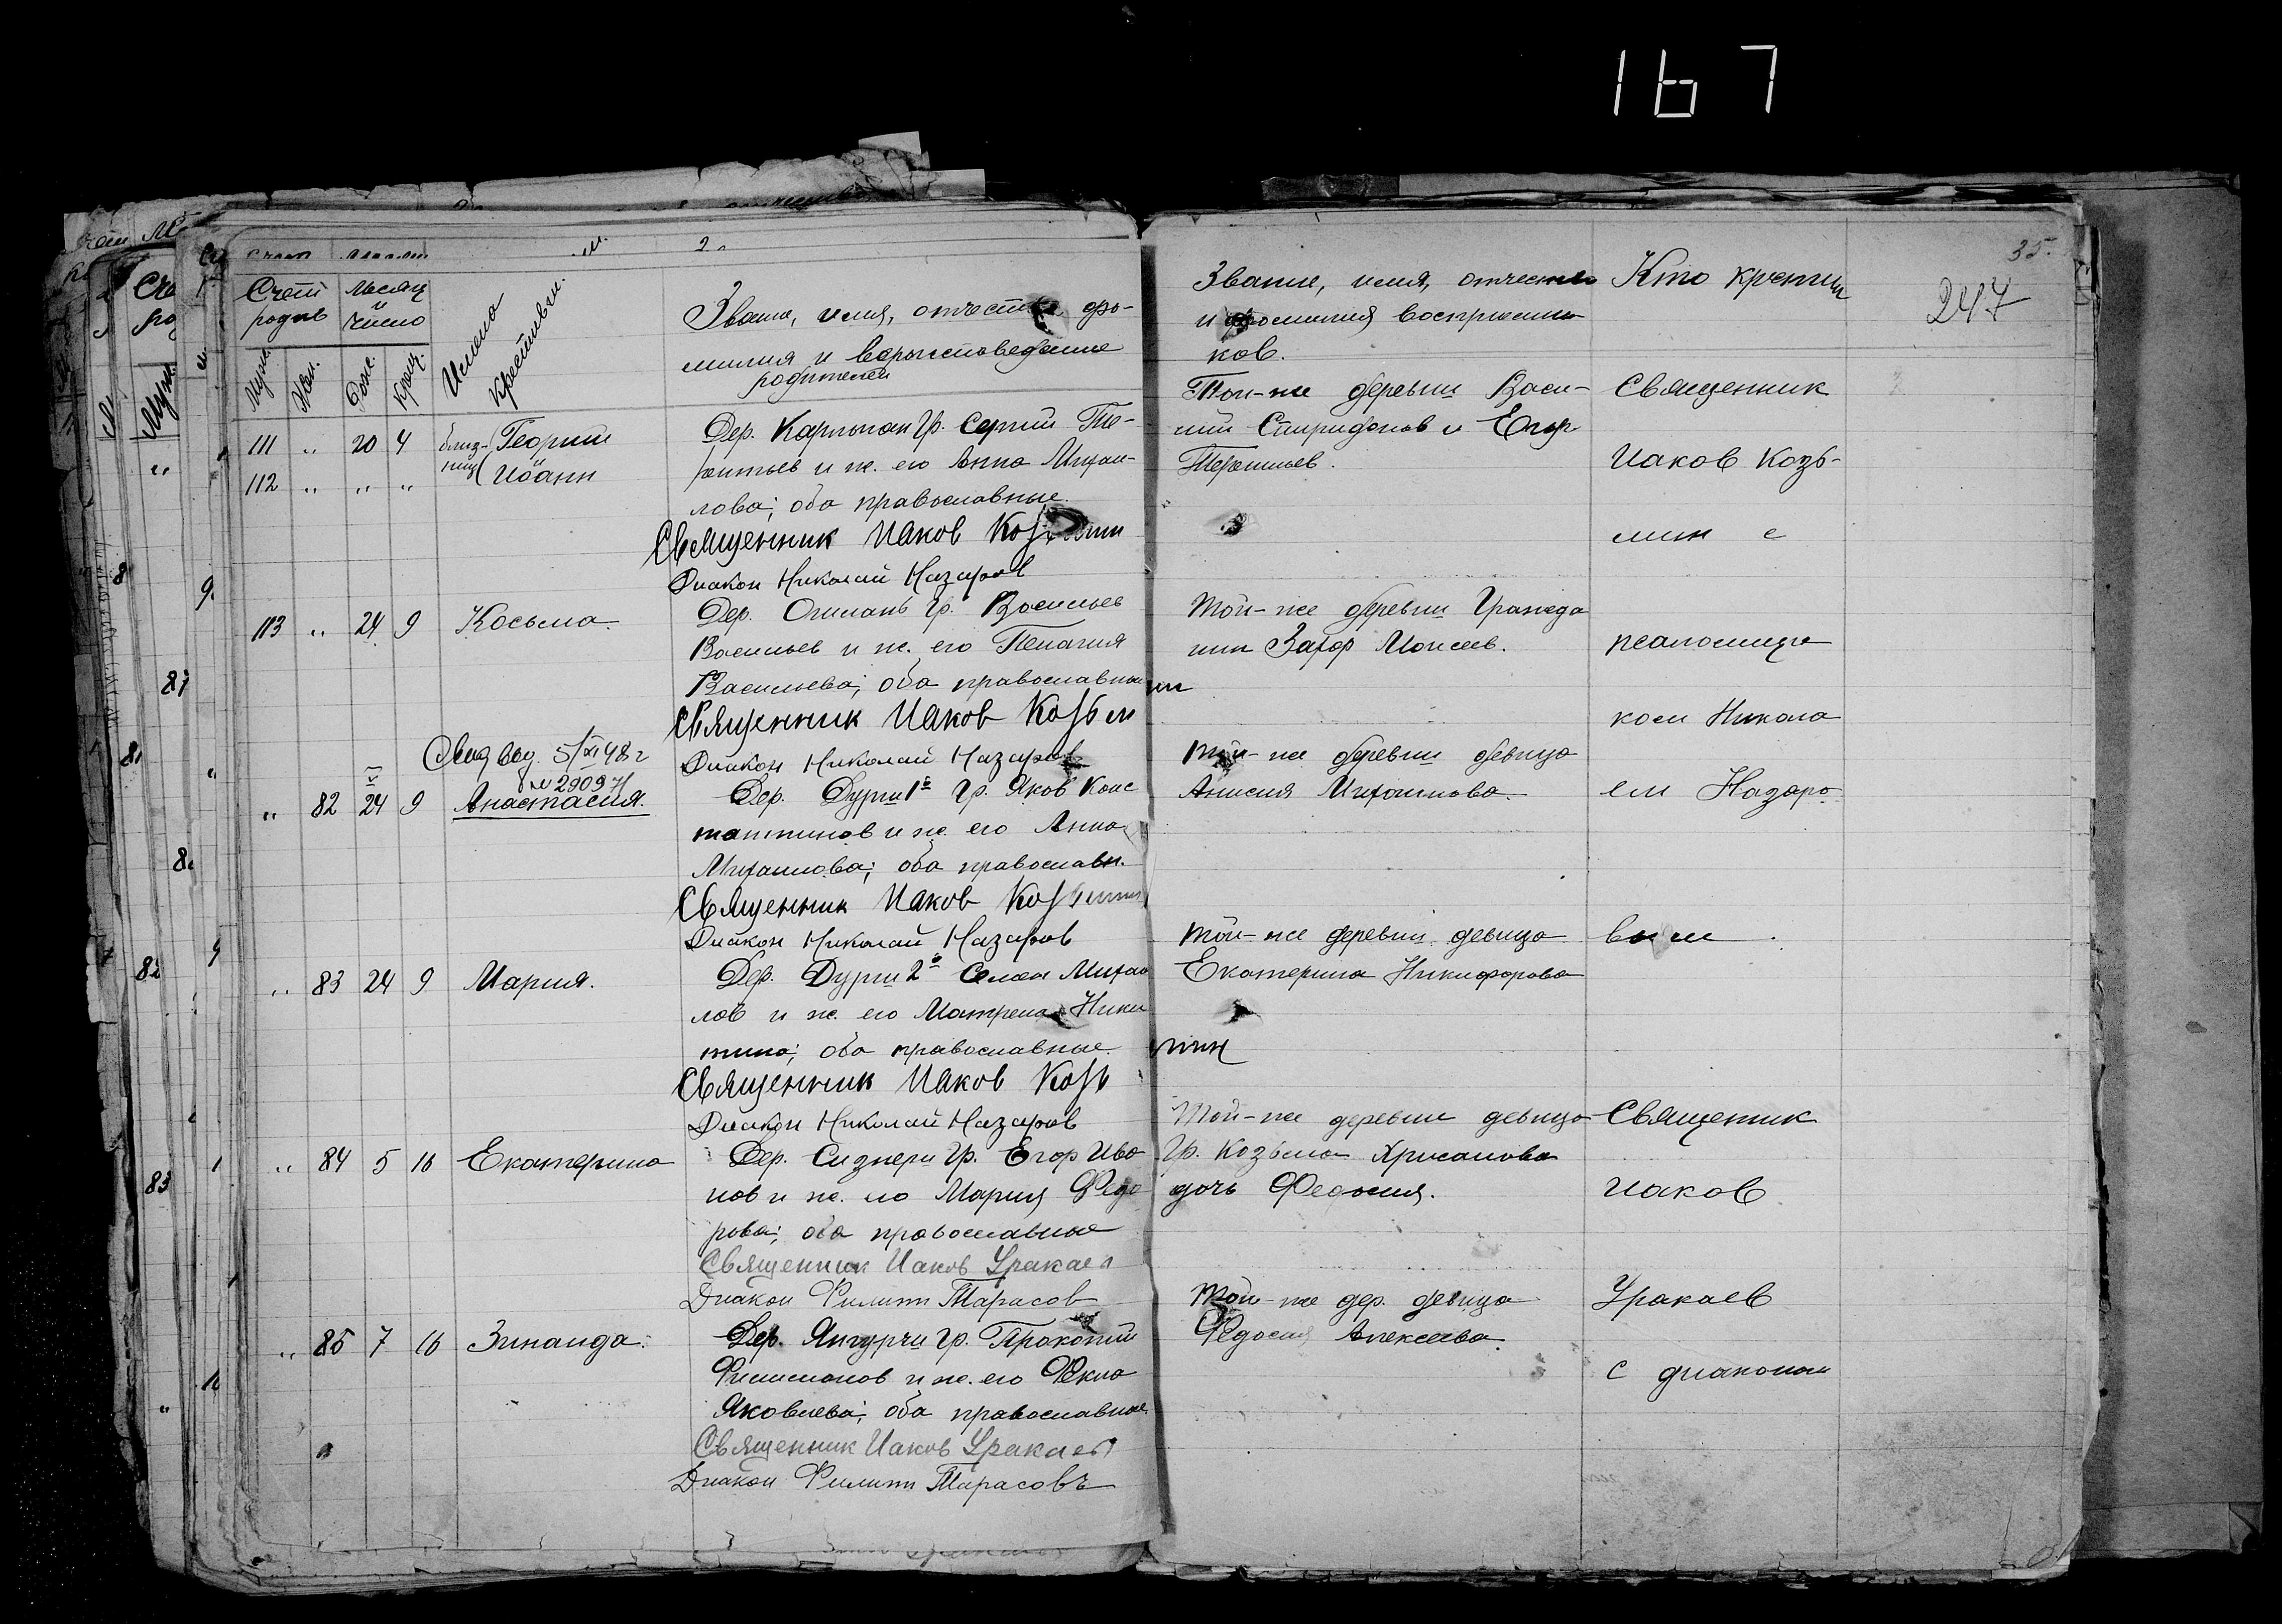 167
35.
247
Счет родив
Месяц и число
Муж.
Жен.
Рож.
Крещ.
Имена Крестивши.
Звание, имя, отчество, фа-
милия и вероисповедание
родителей
Звание, имя, отчество
и фамилия восприемни
ков.
Кто крестил
111 " 20 4 близ- Георгий
ниц Иоанн
112 " " "
Дер. Кармыш Гр. Сергий Те-
рентьев и ж. его Анна Михаи-
лова; оба православные.
Священник Иаков Козьмин
Диакон Николай Назаров
Той-же деревни Васи-
лий Спиридонов и Егор
Терентьев.
Священник
Иаков Козь-
мин с
113 " 24 9 Косьма.
Дер. Гр. Васильев
Васильев и ж. его Пелагия
Васильева; оба православные
Священник Иаков Козьмин
Диакон Николай Назаров
Той-же деревни Гражда
нин Захар Моисеев.
псаломщи
ком Никола
Свид выд. 5/XI 48 г
№ 29097
" 82 24 9 Анастасия.
Дер. 1й Гр. Яков Конс
тантинов и ж. его Анна
Михаилова; оба православн.
Священник Иаков Козьмин
Диакон Николай Назаров
Той-же деревни девица
Анисия Михаилова.
ем Назаро
" 83 24 9 Мария.
Дер. 2й Семен Михаи
лов и ж. его Матрена Ники
тина; оба православные.
Священник Иаков Козьмин
Диакон Николай Назаров
Той-же деревни девица
Екатерина Никифорова
вым
" 84 5 16 Екатерина
Дер. Гр. Егор Ива
нов и ж. его Мария Федо
рова; оба православные
Священник Иаков Уракаев
Диакон Филипп Тарасов
Той-же деревни девица
Гр. Козьма Хрисанова
дочь Федосия.
Священник
Иаков
Уракаев
с диаконом
" 85 7 16 Зинаида.
Дер. Янгурчи Гр. Прокопий
Филимонов и ж. его Фекла
Яковлева; оба православные
Священник Иаков Уракаев
Диакон Филипп Тарасовъ
Той-же дер. девица
Федосия Алексеева.